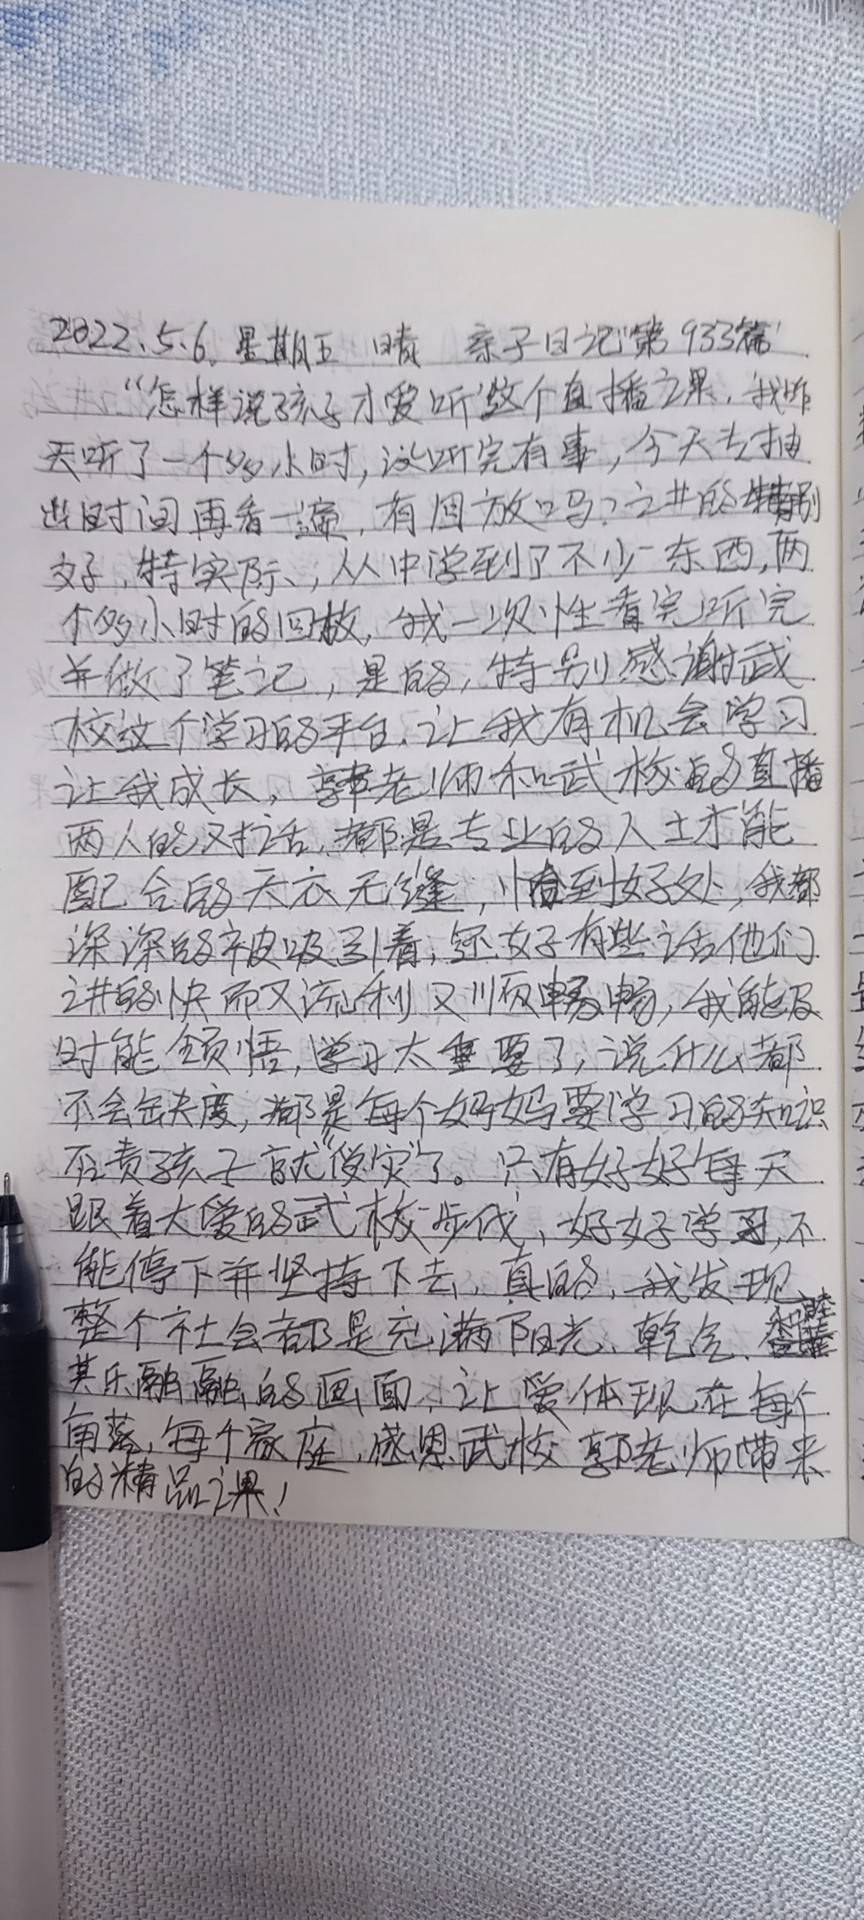 2022.5.6.星期五 晴 亲子日记“第933篇”
“怎样说孩子才爱听”这个直播课，我昨
天听了一个多小时，没听完有事，今天去抽
出时间再看一遍，有回放吗？讲的特别
好，特实际，从中学到了不少东西，两
个多小时的回放，我一次性看完听完
并做了笔记，是的，特别感谢武
校这个学习的平台，让我有机会学习
让我成长，郭老师和武校的直播
两人的对话，都是专业的人士才能
配合的天衣无缝，恰到好处，我都
深深的被吸引着，还好有些话他们
讲的快而又流利又顺畅，我能及
时能领悟，学习太重要了，说什么都
不会缺度，都是每个妈妈要学习的知识
否责孩子就“傻实”了。只有好好每天
跟着大爱的武校步伐，好好学习，不
能停下并坚持下去，真的，我发现
整个社会都是充满阳光、乾乞、和睦
其乐融融的画面，让爱体现在每个
角落，每个家庭，感恩武校郭老师带来
的精品课！